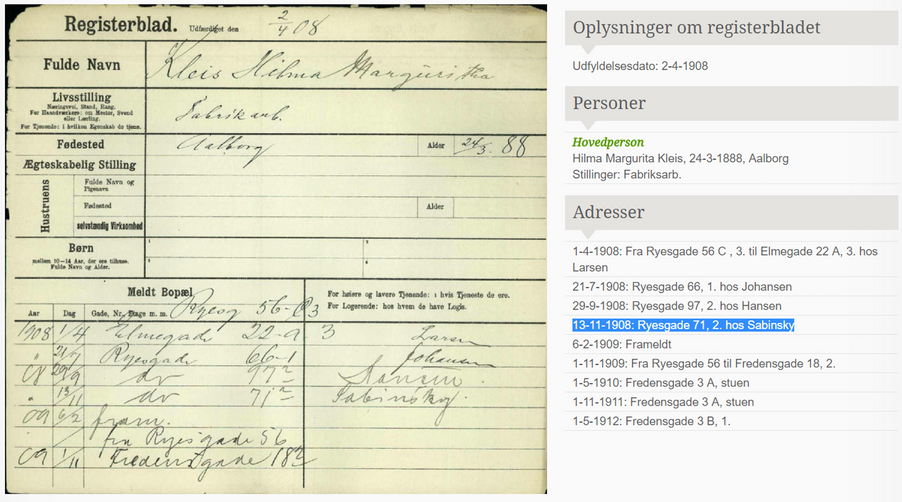 Registerblad. Udfærdiget den 2/4 08
Fulde Navn Kleis Hilma Marguritha
Livsstilling
Næringsvej, Stand, Rang.
For Haandværkere: om Mester, Svend
eller Lærling.
For Tjenende: i hvilken Egenskab de tjene.
Fabrikarb.
Fødested Aalborg Alder 24/3. 88
Ægteskabelig Stilling
Hustruens
Fulde Navn og
Pigenavn
Fødested Alder
selvstændig Virksomhed
Børn
mellem 10–14 Aar, der ere tilhuse.
Fulde Navn og Alder.
1
2
3
4
Meldt Bopæl
For højere og lavere Tjenende: i hvis Tjeneste de ere.
For Logerende: hos hvem de have Logis.
Aar Dag Gade, Nr., Etage m. m. Ryesg 56-C3
1908 1/4 Elmegade 22-A 3 Larsen
" 21/7 Ryesgade 66-1 Johansen
08 29/9 do 97 2 Hansen.
" 13/11 do 71 2 Sabinsky.
09 6/2 fram.
fra Ryesgade 56
09 1/11 Fredensgade 18 2
Oplysninger om registerbladet
Udfyldelsesdato: 2-4-1908
Personer
Hovedperson
Hilma Margurita Kleis, 24-3-1888, Aalborg
Stillinger: Fabriksarb.
Adresser
1-4-1908: Fra Ryesgade 56 C , 3. til Elmegade 22 A, 3. hos
Larsen
21-7-1908: Ryesgade 66, 1. hos Johansen
29-9-1908: Ryesgade 97, 2. hos Hansen
13-11-1908: Ryesgade 71, 2. hos Sabinsky
6-2-1909: Frameldt
1-11-1909: Fra Ryesgade 56 til Fredensgade 18, 2.
1-5-1910: Fredensgade 3 A, stuen
1-11-1911: Fredensgade 3 A, stuen
1-5-1912: Fredensgade 3 B, 1.